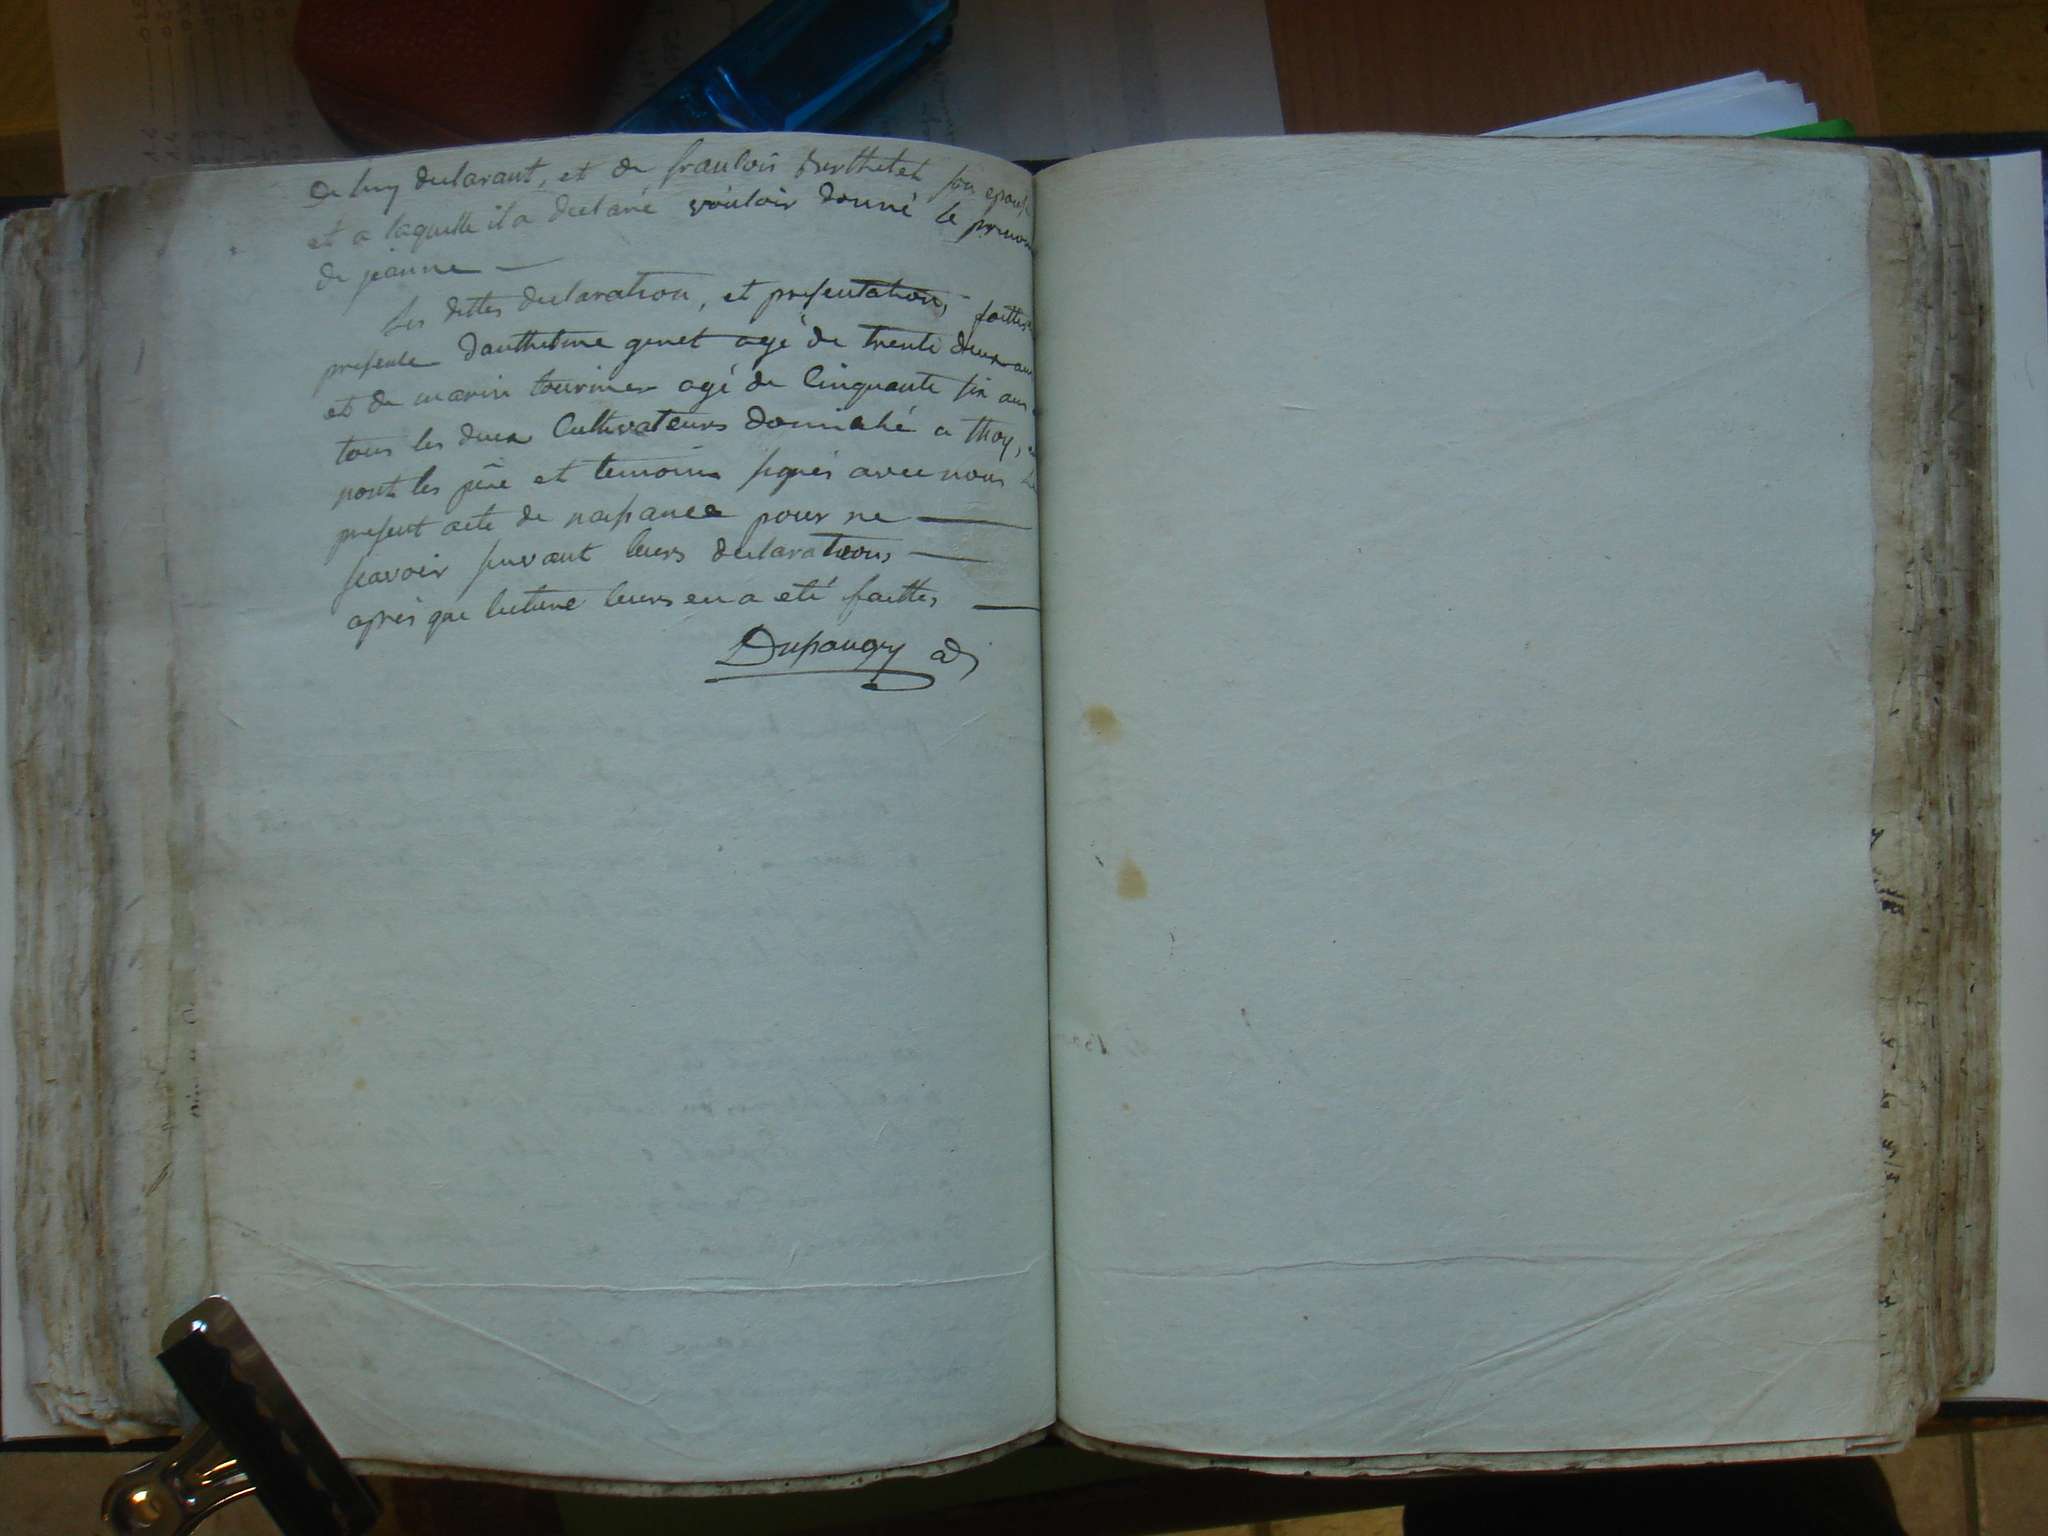 De luy declarant, et de francoise Berthetet son epouse
et a laquelle il a declaré voúloir donné le prenom
de jeanne —
Les dittes declaration, et presentation, faittes
presence danthelme genet agé de trente deux ans
et de marin tournier agé de Cinquante six ans
tous les deux Cultivateurs domicilié a thoy,
nont les père et temoins signés avec nous Le
present acte de naissance pour ne —
scavoir suivant leurs declarations —
après que lecture leurs en a eté faittes —
Dupaugey adj